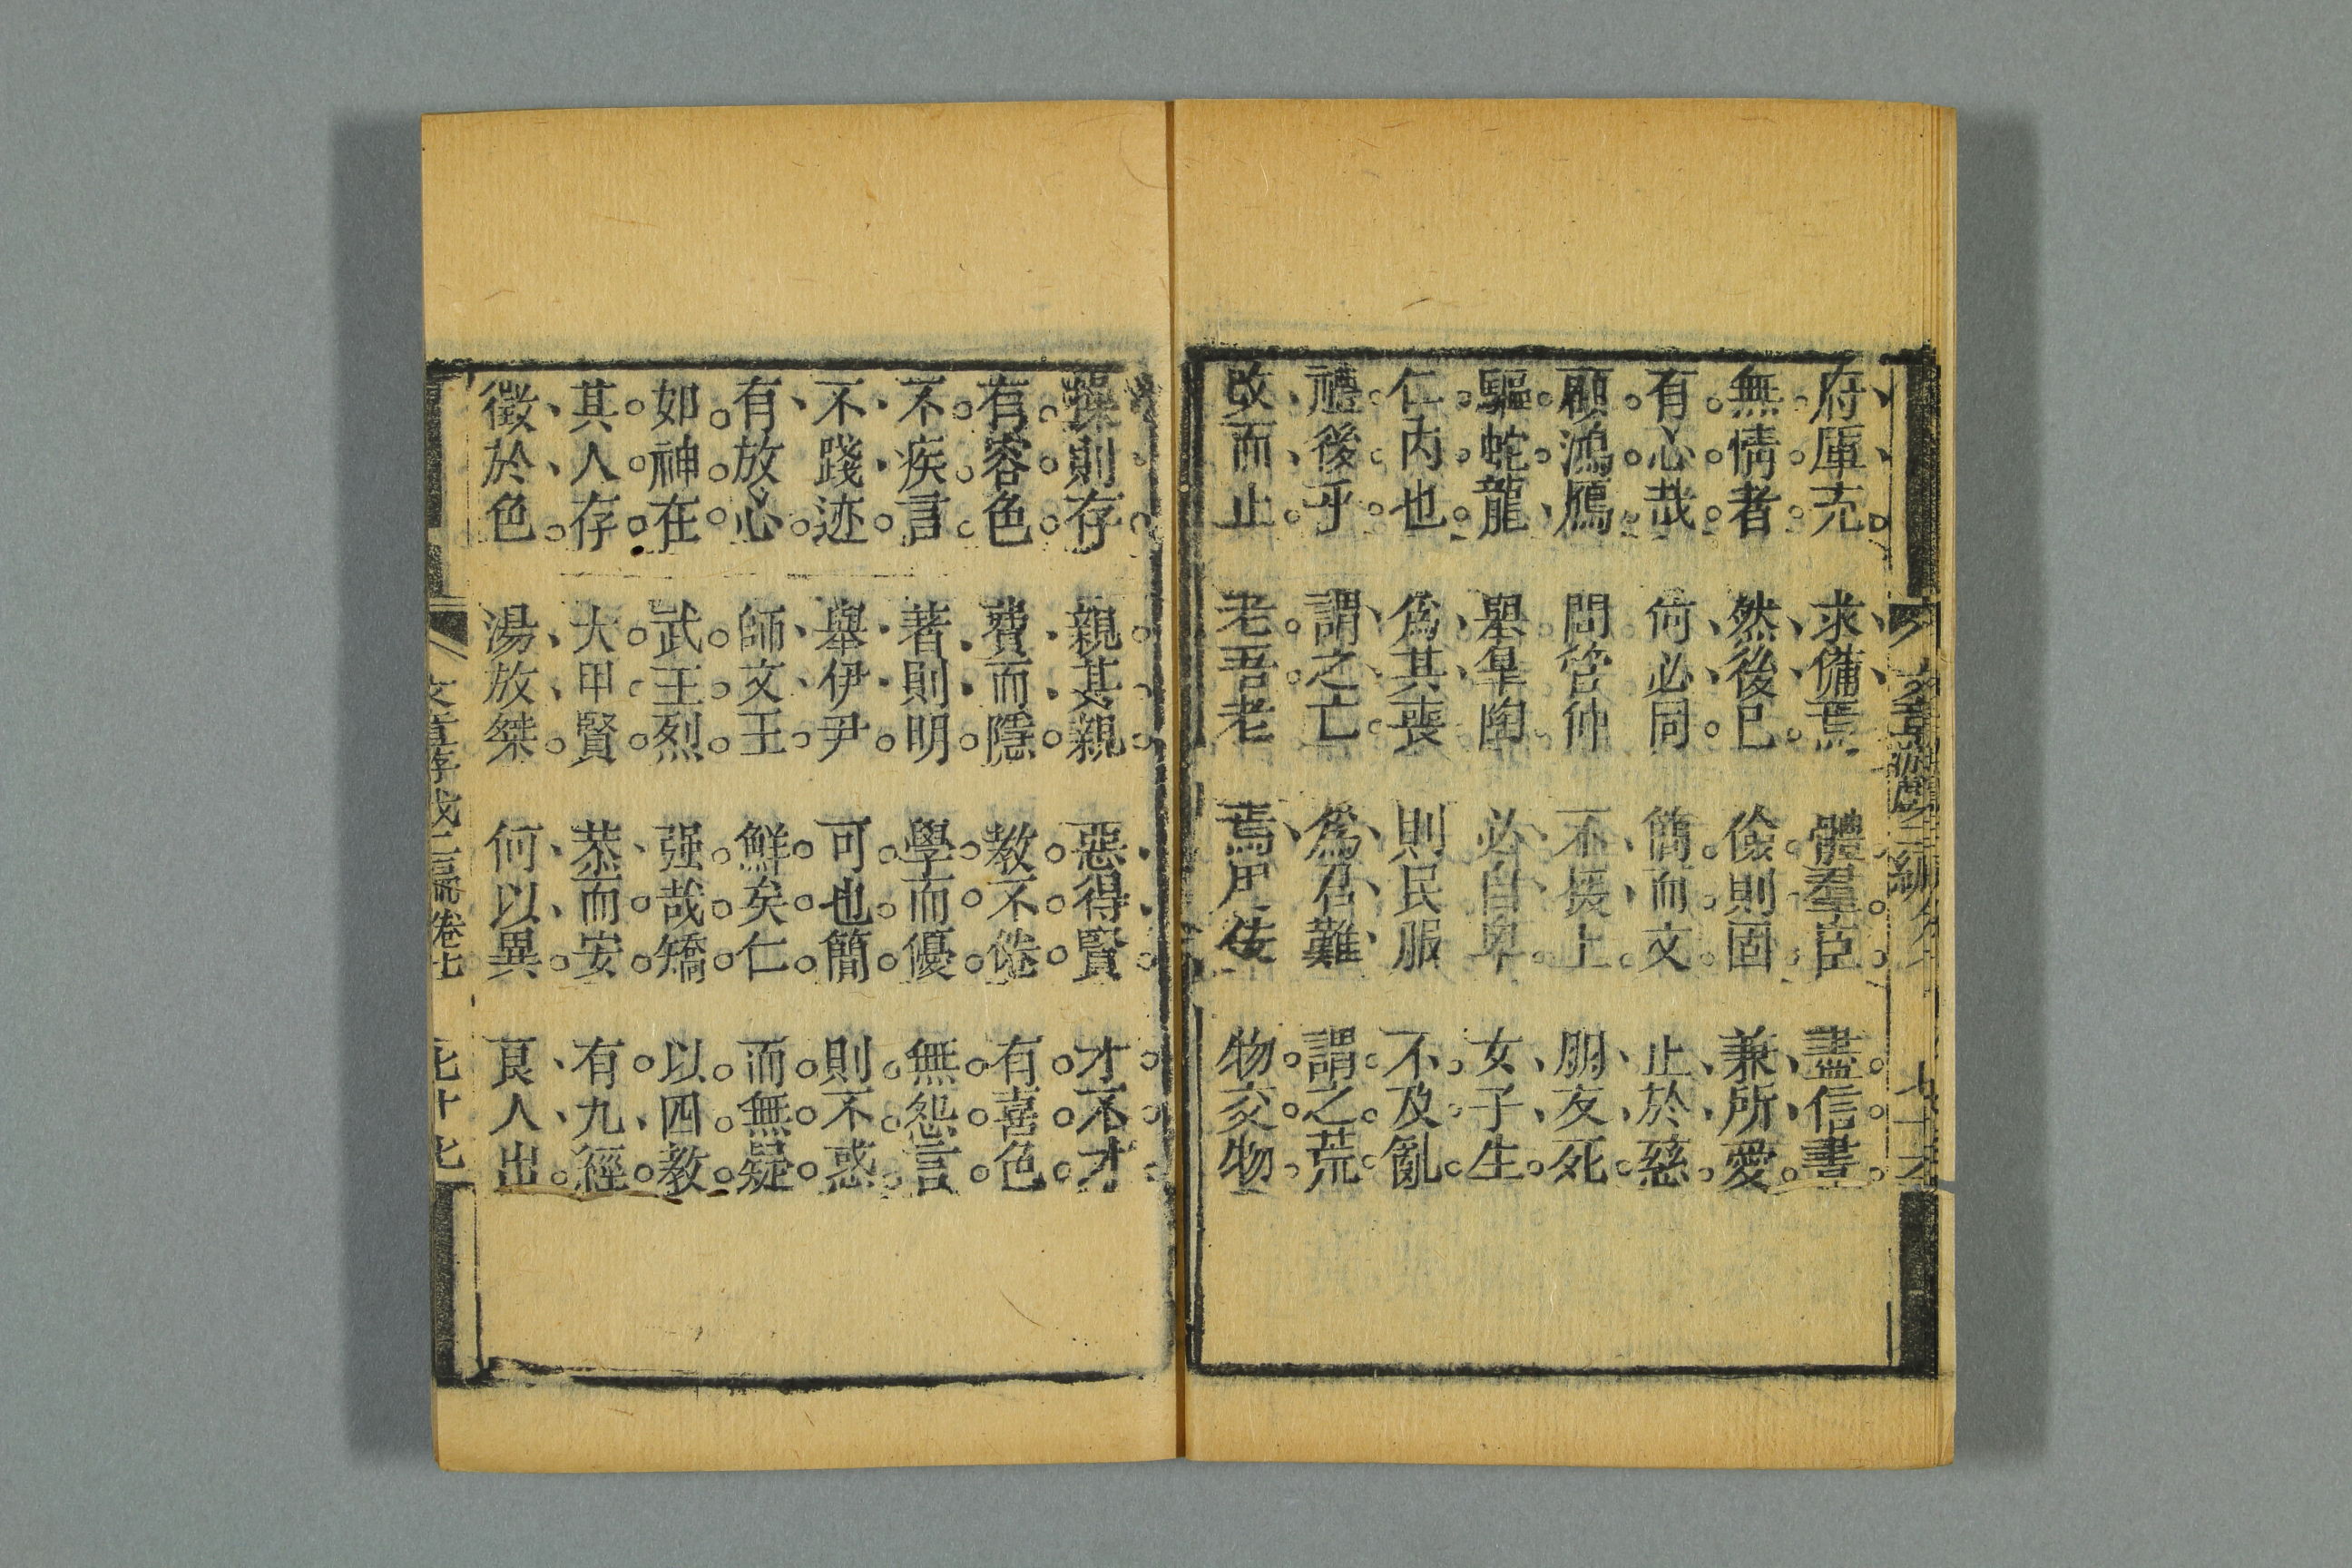 府庫充　求備焉　體羣臣　盡信書
無情者　然後已　儉則固　兼所愛
有心哉　何必同　簡而文　止於慈
顧鴻鴈　問管仲　不援上　朋友死
驅蛇龍　舉皐陶　必自卑　女子生
仁內也　爲其喪　則民服　不及亂
禮後乎　謂之亡　爲君難　謂之荒
改而止　老吾老　焉用佞　物交物
操則存　親其親　惡得賢　才不才
有容色　費而隱　教不倦　有喜色
不疾言　著則明　學而優　無怨言
不踐迹　舉伊尹　可也簡　則不惑
有放心　師文王　鮮矣仁　而無疑
如神在　武王烈　强哉矯　以四教
其人存　大甲賢　恭而安　有九經
徵於色　湯放桀　何以異　良人出
卷七　七十七